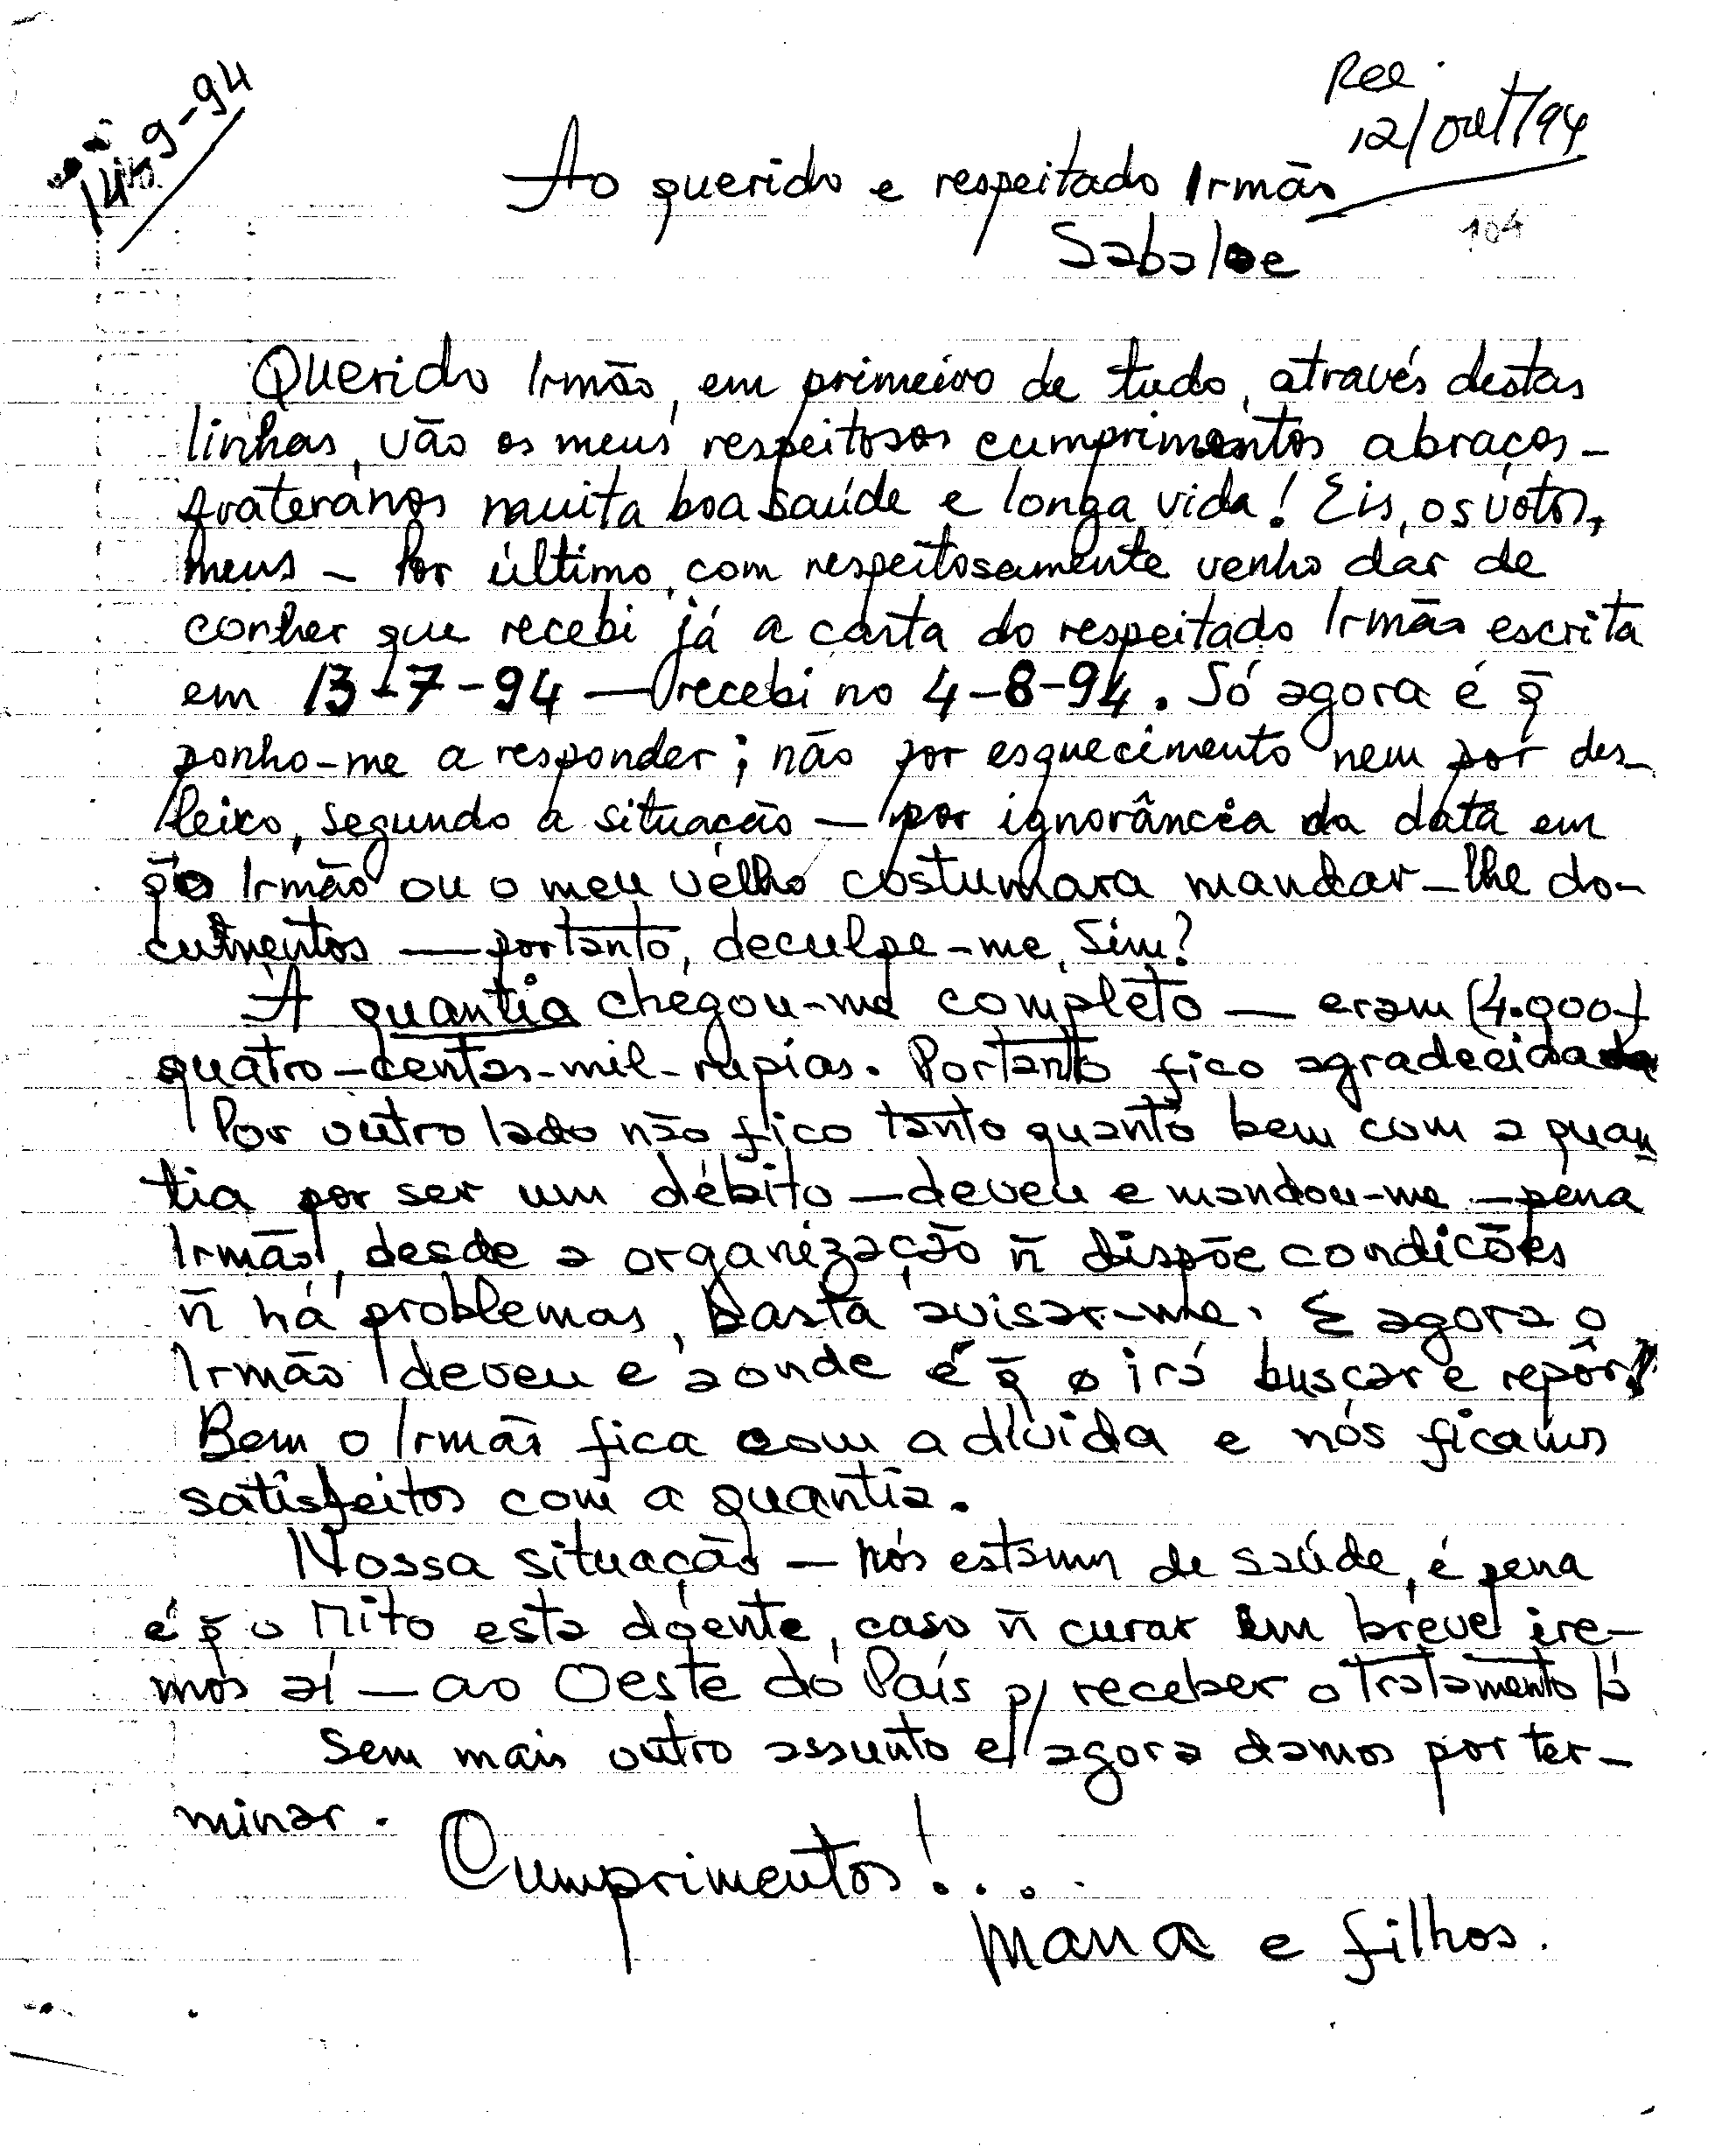 14-9-94
Rec.
12/out/94
Ao querido e respeitado Irmão
104
Sabalae
Querido Irmão, em primeiro de tudo, através destas
linhas, vão os meus respeitosos cumprimentos abraços-
fraterános muita boa saúde e longa vida! Eis, os votos,
meus - Por último, com respeitosamente venho dar de
conher que recebi já a carta do respeitado Irmão escrita
em 13-7-94 — recebi no 4-8-94. Só agora é q̄
ponho-me a responder; não por esquecimento nem por des-
leixo, segundo a situação — por ignorância da data em
q̄ o Irmão ou o meu velho costumara mandar-lhe do-
cumentos — portanto, deculpe-me, Sim?
A quantia chegou-me completo — eram (4.000)
quatro-centas-mil-rupias. Portanto fico agradecida
Por outro lado não fico tanto quanto bem com a quan
tia por ser um débito — deveu e mandou-me — pena
Irmão, desde a organização n̄ dispõe condições
n̄ há problemas, basta avisar-me. E agora o
Irmão deveu e aonde é q̄ o irá buscar e repôr?
Bem o Irmão fica com a dívida e nós ficamos
satisfeitos com a quantia.
Nossa situação — nós estamos de saúde, é pena
é q̄ o Mito esta doente, caso n̄ curar em breve ire-
mos aí — ao Oeste do País p/ receber o tratamento lá
Sem mais outro assunto e/ agora damos por ter-
minar.
Cumprimentos!...
Mana e filhos.